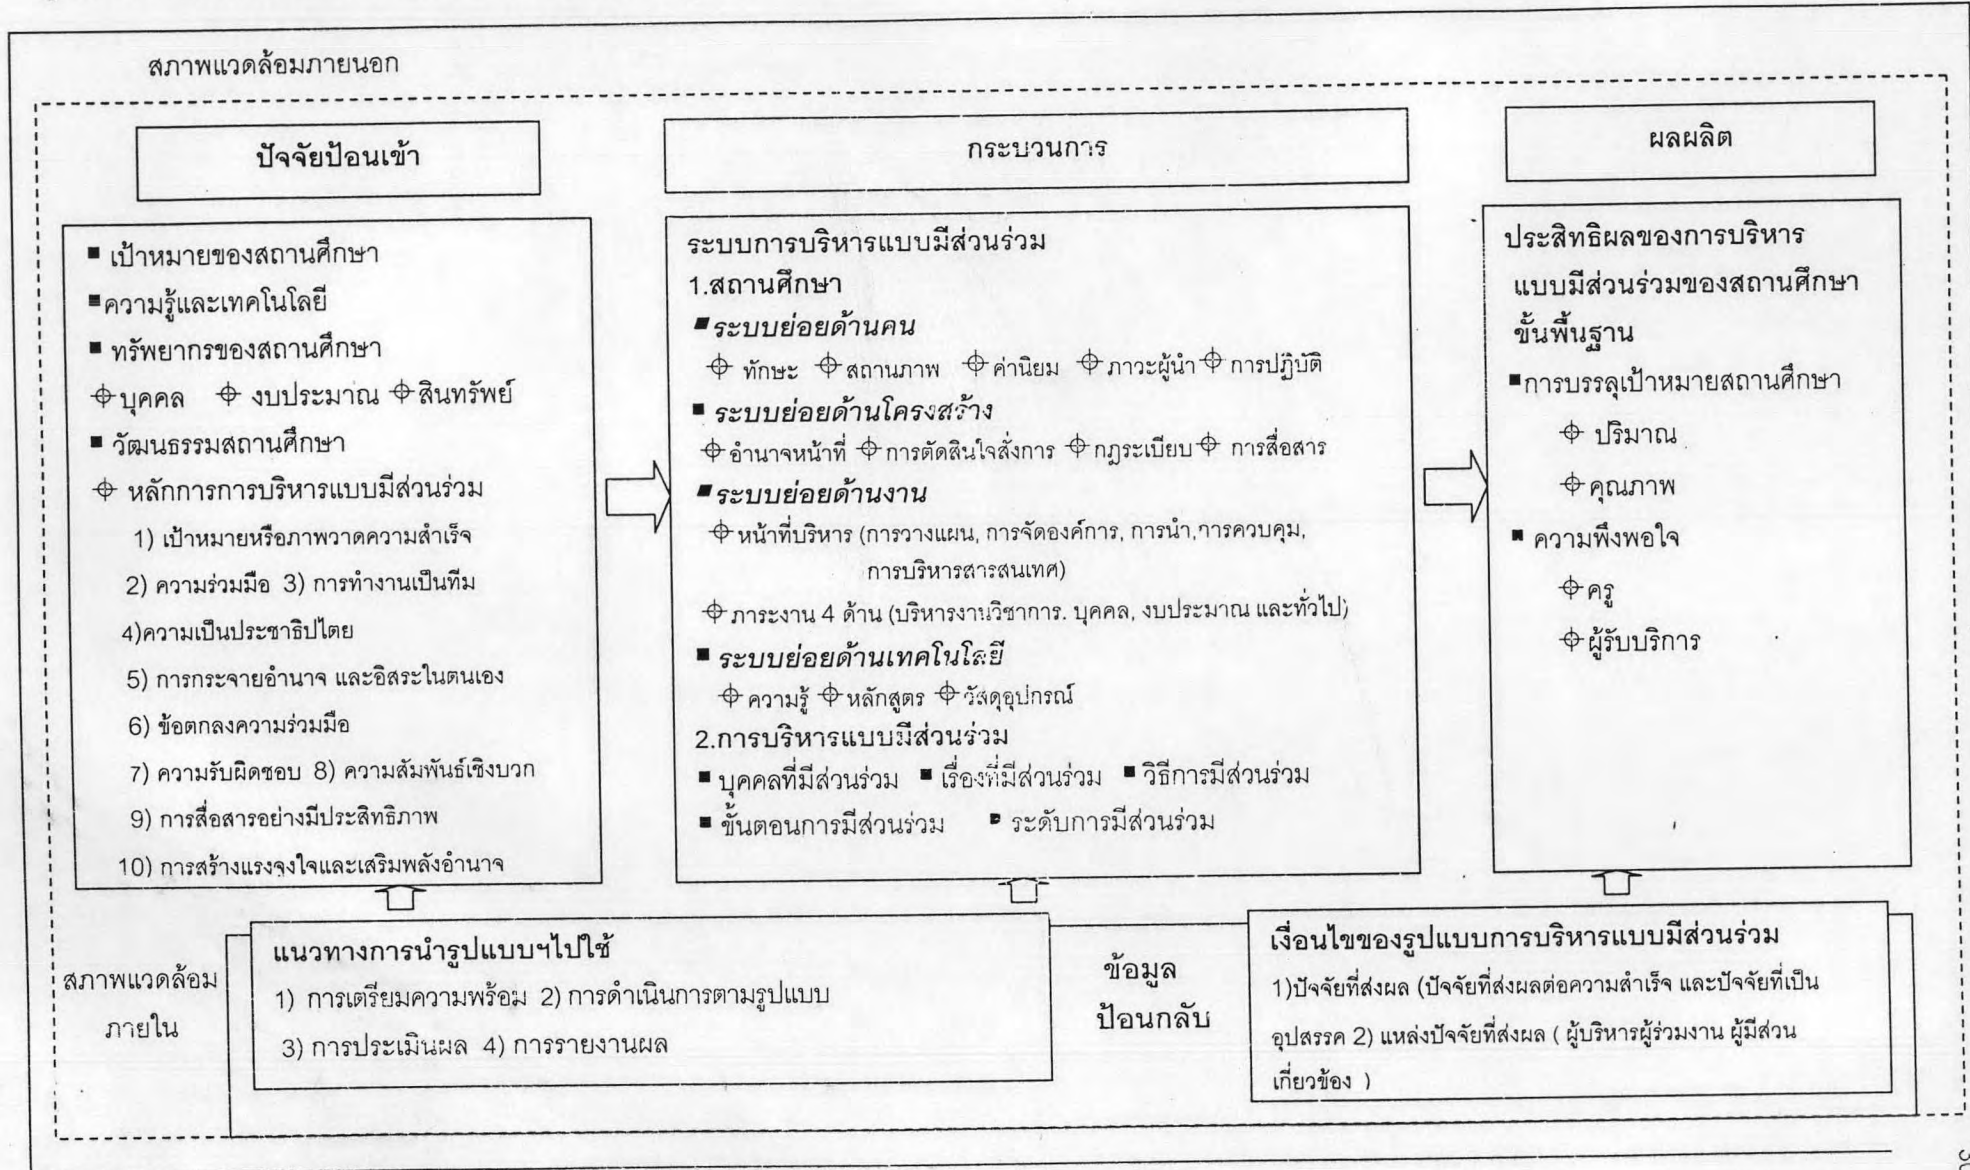 สภาพแวดล้อมภายนอก
ปัจจัยป้อนเข้า
■ เป้าหมายของสถานศึกษา
■ความรู้และเทคโนโลยี
■ ทรัพยากรของสถานศึกษา
⌖บุคคล ⌖ งบประมาณ ⌖สินทรัพย์
■ วัฒนธรรมสถานศึกษา
⌖ หลักการการบริหารแบบมีส่วนร่วม
1) เป้าหมายหรือภาพวาดความสำเร็จ
2) ความร่วมมือ 3) การทำงานเป็นทีม
4)ความเป็นประชาธิปไตย
5) การกระจายอำนาจ และอิสระในตนเอง
6) ข้อตกลงความร่วมมือ
7) ความรับผิดชอบ 8) ความสัมพันธ์เชิงบวก
9) การสื่อสารอย่างมีประสิทธิภาพ
10) การสร้างแรงจูงใจและเสริมพลังอำนาจ
กระบวนการ
ระบบการบริหารแบบมีส่วนร่วม
1.สถานศึกษา
■ระบบย่อยด้านคน
⌖ ทักษะ ⌖สถานภาพ ⌖ค่านิยม ⌖ภาวะผู้นำ⌖ การปฏิบัติ
■ ระบบย่อยด้านโครงสร้าง
⌖อำนาจหน้าที่ ⌖การตัดสินใจสั่งการ ⌖กฎระเบียบ⌖ การสื่อสาร
■ระบบย่อยด้านงาน
⌖หน้าที่บริหาร (การวางแผน, การจัดองค์การ, การนำ,การควบคุม,
การบริหารสารสนเทศ)
⌖ภาระงาน 4 ด้าน (บริหารงานวิชาการ. บุคคล, งบประมาณ และทั่วไป)
■ ระบบย่อยด้านเทคโนโลยี
⌖ความรู้ ⌖หลักสูตร ⌖วัสดุอุปกรณ์
2.การบริหารแบบมีส่วนร่วม
■ บุคคลที่มีส่วนร่วม ■ เรื่องที่มีส่วนร่วม ■ วิธีการมีส่วนร่วม
■ ขั้นตอนการมีส่วนร่วม ■ ระดับการมีส่วนร่วม
ผลผลิต
ประสิทธิผลของการบริหาร
แบบมีส่วนร่วมของสถานศึกษา
ขั้นพื้นฐาน
■การบรรลุเป้าหมายสถานศึกษา
⌖ ปริมาณ
⌖คุณภาพ
■ ความพึงพอใจ
⌖ครู
⌖ผู้รับบริการ
สภาพแวดล้อม
ภายใน
แนวทางการนำรูปแบบฯไปใช้
1) การเตรียมความพร้อม 2) การดำเนินการตามรูปแบบ
3) การประเมินผล 4) การรายงานผล
ข้อมูล
ป้อนกลับ
เงื่อนไขของรูปแบบการบริหารแบบมีส่วนร่วม
1)ปัจจัยที่ส่งผล (ปัจจัยที่ส่งผลต่อความสำเร็จ และปัจจัยที่เป็น
อุปสรรค 2) แหล่งปัจจัยที่ส่งผล ( ผู้บริหารผู้ร่วมงาน ผู้มีส่วน
เกี่ยวข้อง )